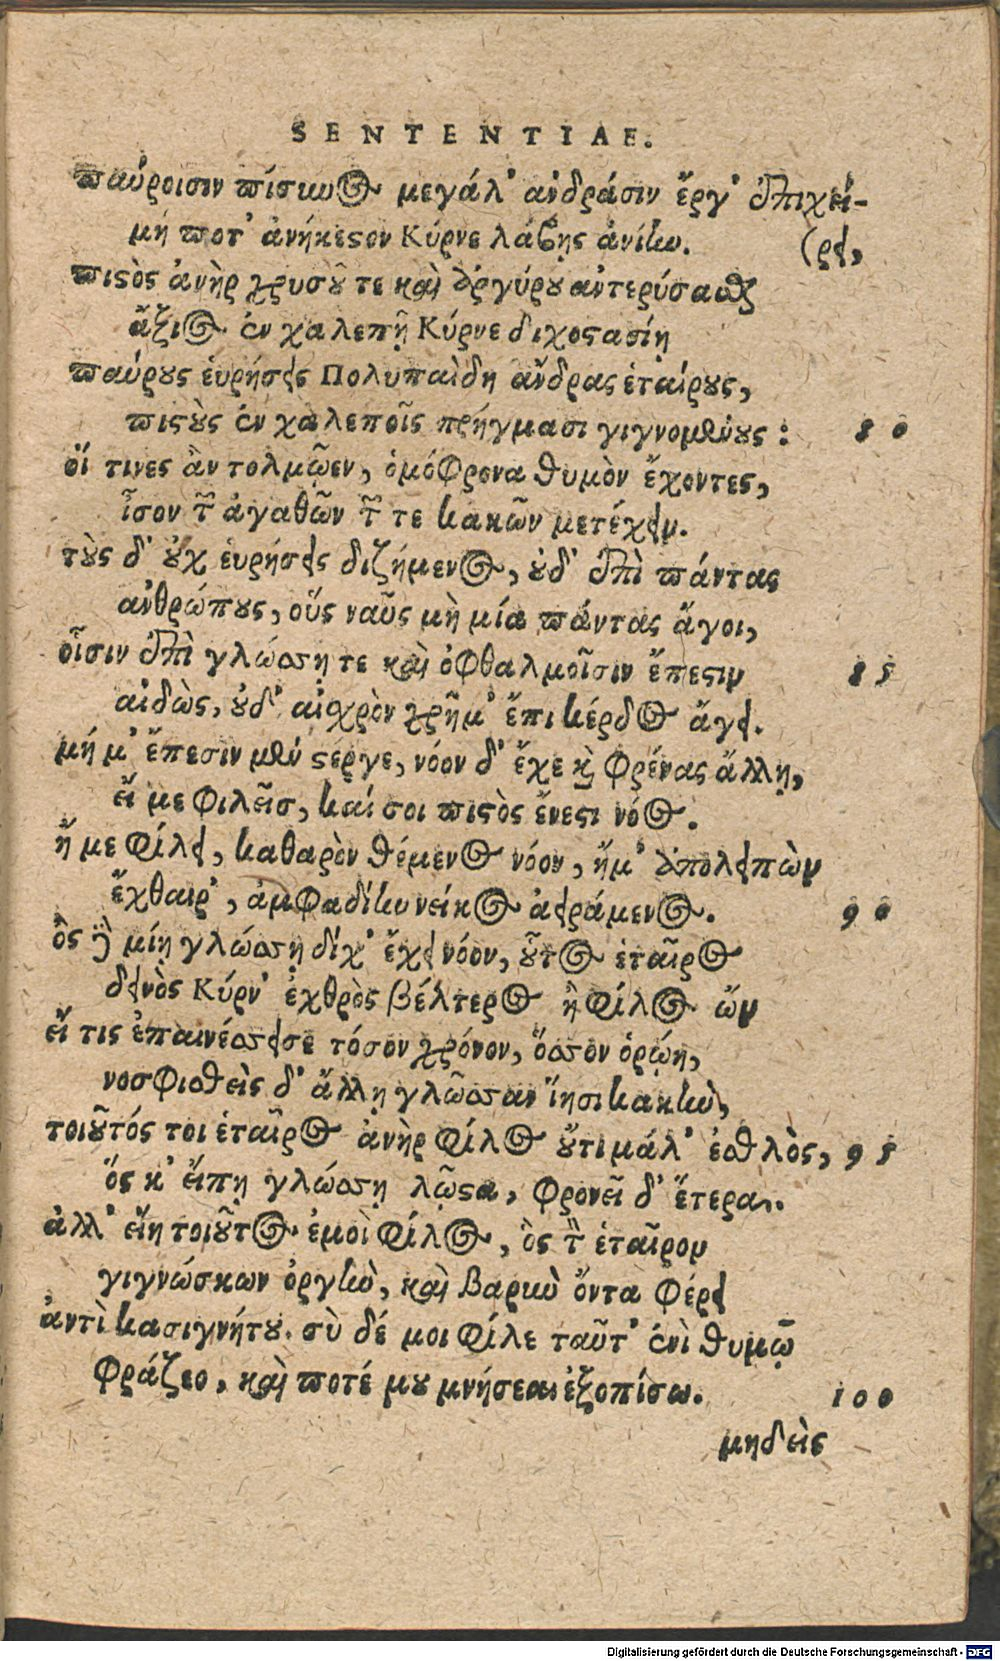 SENTENTIAE.
παύροισιν πίσυνος μεγάλ' ἀνδράσιν ἔργ' ἐπιχεί-
μή ποτ' ἀνήκεστον Κύρνε λάβῃς ἀνίην. (ρει,
πιστὸς ἀνὴρ χρυσοῦ τε καὶ ἀργύρου ἀντερύσασθαι
ἄξιος ἐν χαλεπῇ Κύρνε διχοστασίῃ
παύρους εὑρήσεις Πολυπαΐδη ἄνδρας ἑταίρους,
πιστοὺς ἐν χαλεποῖς πρήγμασι γιγνομένους: 80
οἵ τινες ἂν τολμῷεν, ὁμόφρονα θυμὸν ἔχοντες,
ἶσον τῶν ἀγαθῶν τῶν τε κακῶν μετέχειν.
τοὺς δ' οὐχ εὑρήσεις διζήμενος, οὐδ' ἐπὶ πάντας
ἀνθρώπους, οὓς ναῦς μὴ μία πάντας ἄγοι,
οἷσιν ἐπὶ γλώσσῃ τε καὶ ὀφθαλμοῖσιν ἔπεστιν 85
αἰδὼς, οὐδ' αἰσχρὸν χρῆμ' ἔπι κέρδος ἄγει.
μή μ' ἔπεσιν μὲν στέργε, νόον δ' ἔχε καὶ φρένας ἄλλῃ,
εἴ με φιλεῖσ, καί σοι πιστὸς ἔνεστι νόος.
ἤ με φίλει, καθαρὸν θέμενος νόον, ἤ μ' ἀπολειπὼν
ἔχθαιρ', ἀμφαδίην νεῖκος ἀειράμενος. 90
ὃς δὲ μίῃ γλώσσῃ δίχ' ἔχει νόον, οὗτος ἑταῖρος
δεινὸς Κύρν' ἐχθρὸς βέλτερος ἢ φίλος ὤν
εἴ τις ἐπαινέσσεισε τόσον χρόνον, ὅσσον ὁρῴη,
νοσφισθεὶς δ' ἄλλῃ γλῶσσαν ἵησι κακὴν,
τοιοῦτός τοι ἑταῖρος ἀνὴρ φίλος οὔτι μάλ' ἐσθλὸς, 95
ὅς κ' εἴπῃ γλώσσῃ λῷστα, φρονεῖ δ' ἕτερα.
ἀλλ' εἴη τοιοῦτος ἐμοὶ φίλος, ὃς τὸν ἑταῖρον
γιγνώσκων ὀργὴν, καὶ βαρὺν ὄντα φέρει
ἀντὶ κασιγνήτου. σὺ δέ μοι φίλε ταῦτ' ἐνὶ θυμῷ
φράζεο, καὶ ποτέ μου μνήσεαι ἐξοπίσω. 100
μηδεὶς
Digitalisierung gefördert durch die Deutsche Forschungsgemeinschaft - DFG